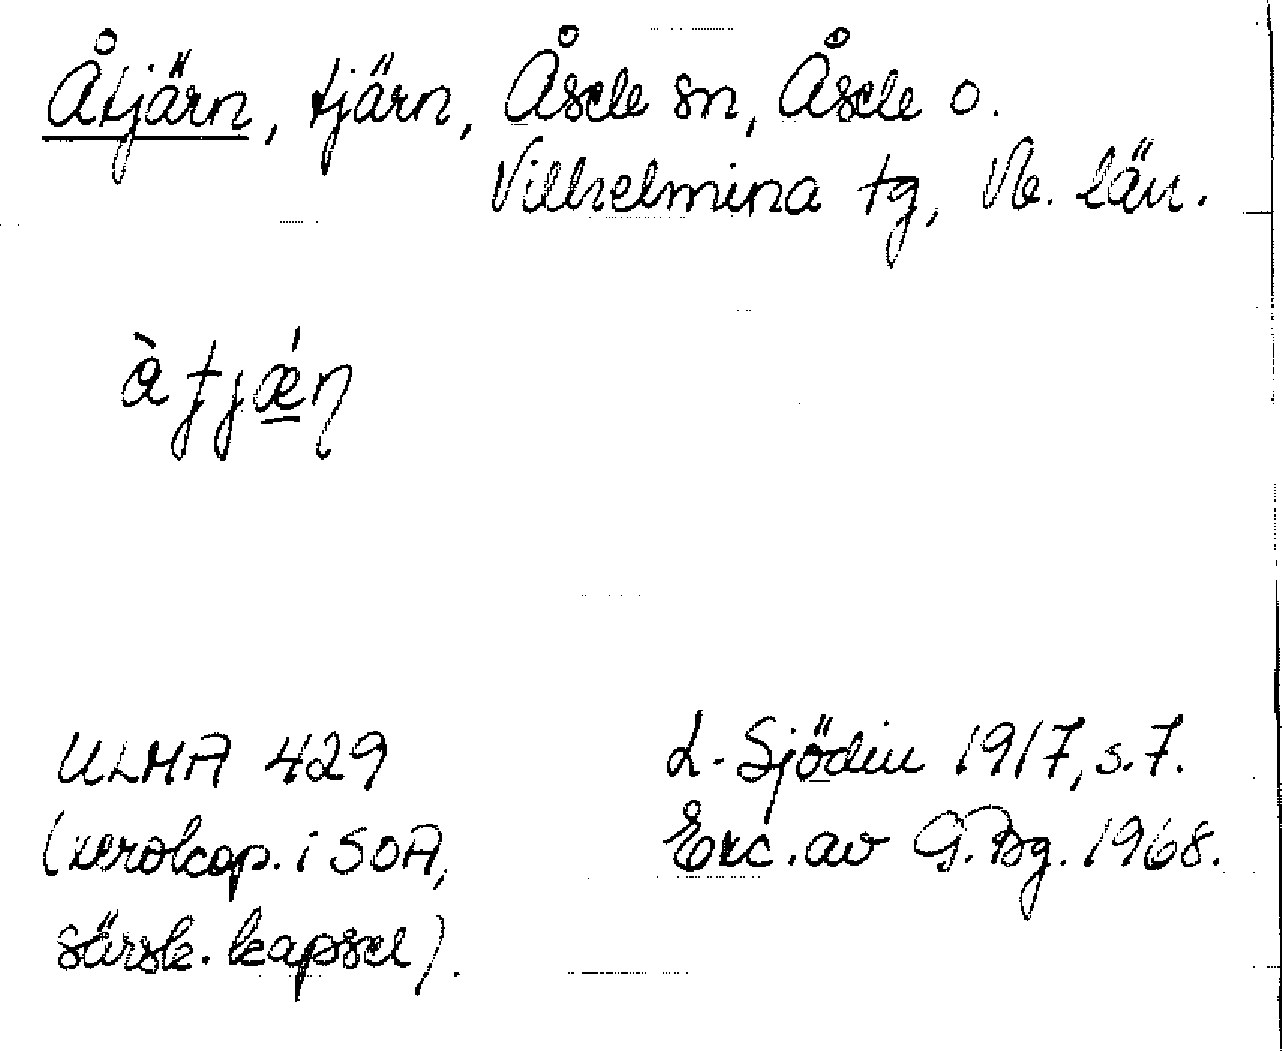 Åtjärn, tjärn, Åsele sn, Åsele o.
Vilhelmina tg, Vb. län.
ULMA 429
(xerokop. i SOA,
särsk. kapsel).
L. Sjödin 1917, s. 7.
Exc. av G. Bg. 1968.